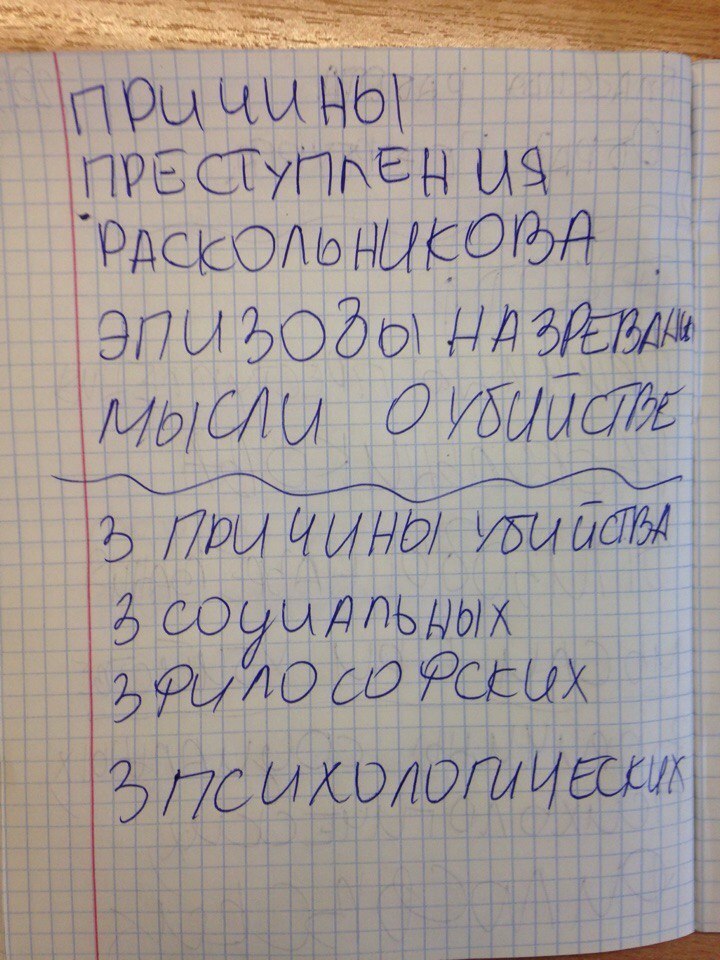 ПРИЧИНЫ
ПРЕСТУПЛЕНИЯ
РАСКОЛЬНИКОВА
ЭПИЗОДЫ НАЗРЕВАНИ
МЫСЛИ О УБИЙСТВЕ
3 ПРИЧИНЫ УБИЙСТВА
3 СОЦИАЛЬНЫХ
3 ФИЛОСОФСКИХ
3 ПСИХОЛОГИЧЕСКИХ